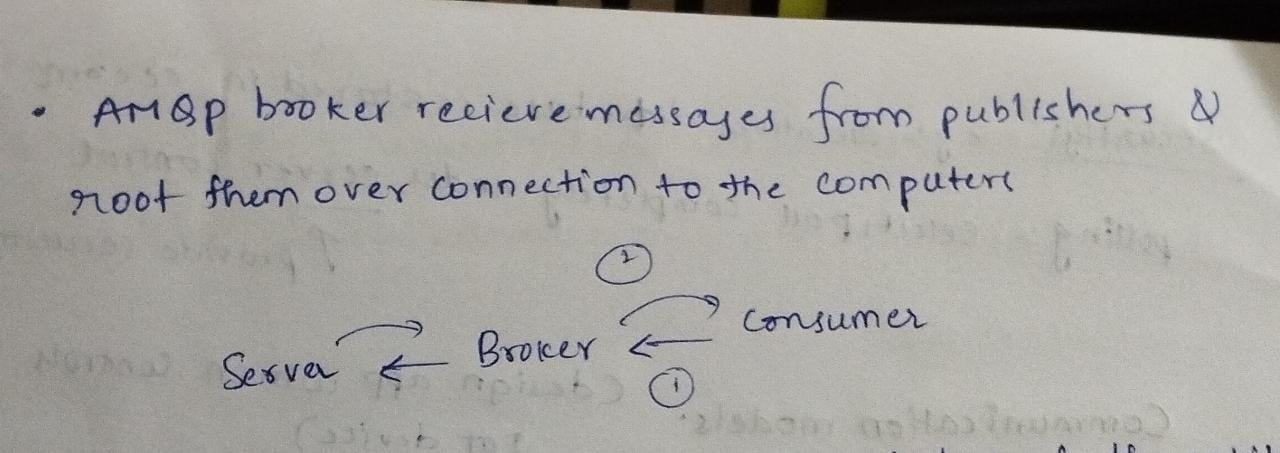 • AMQP broker recieve messages from publishers &
root them over connection to the computers
2
Server Broker Consumer
1